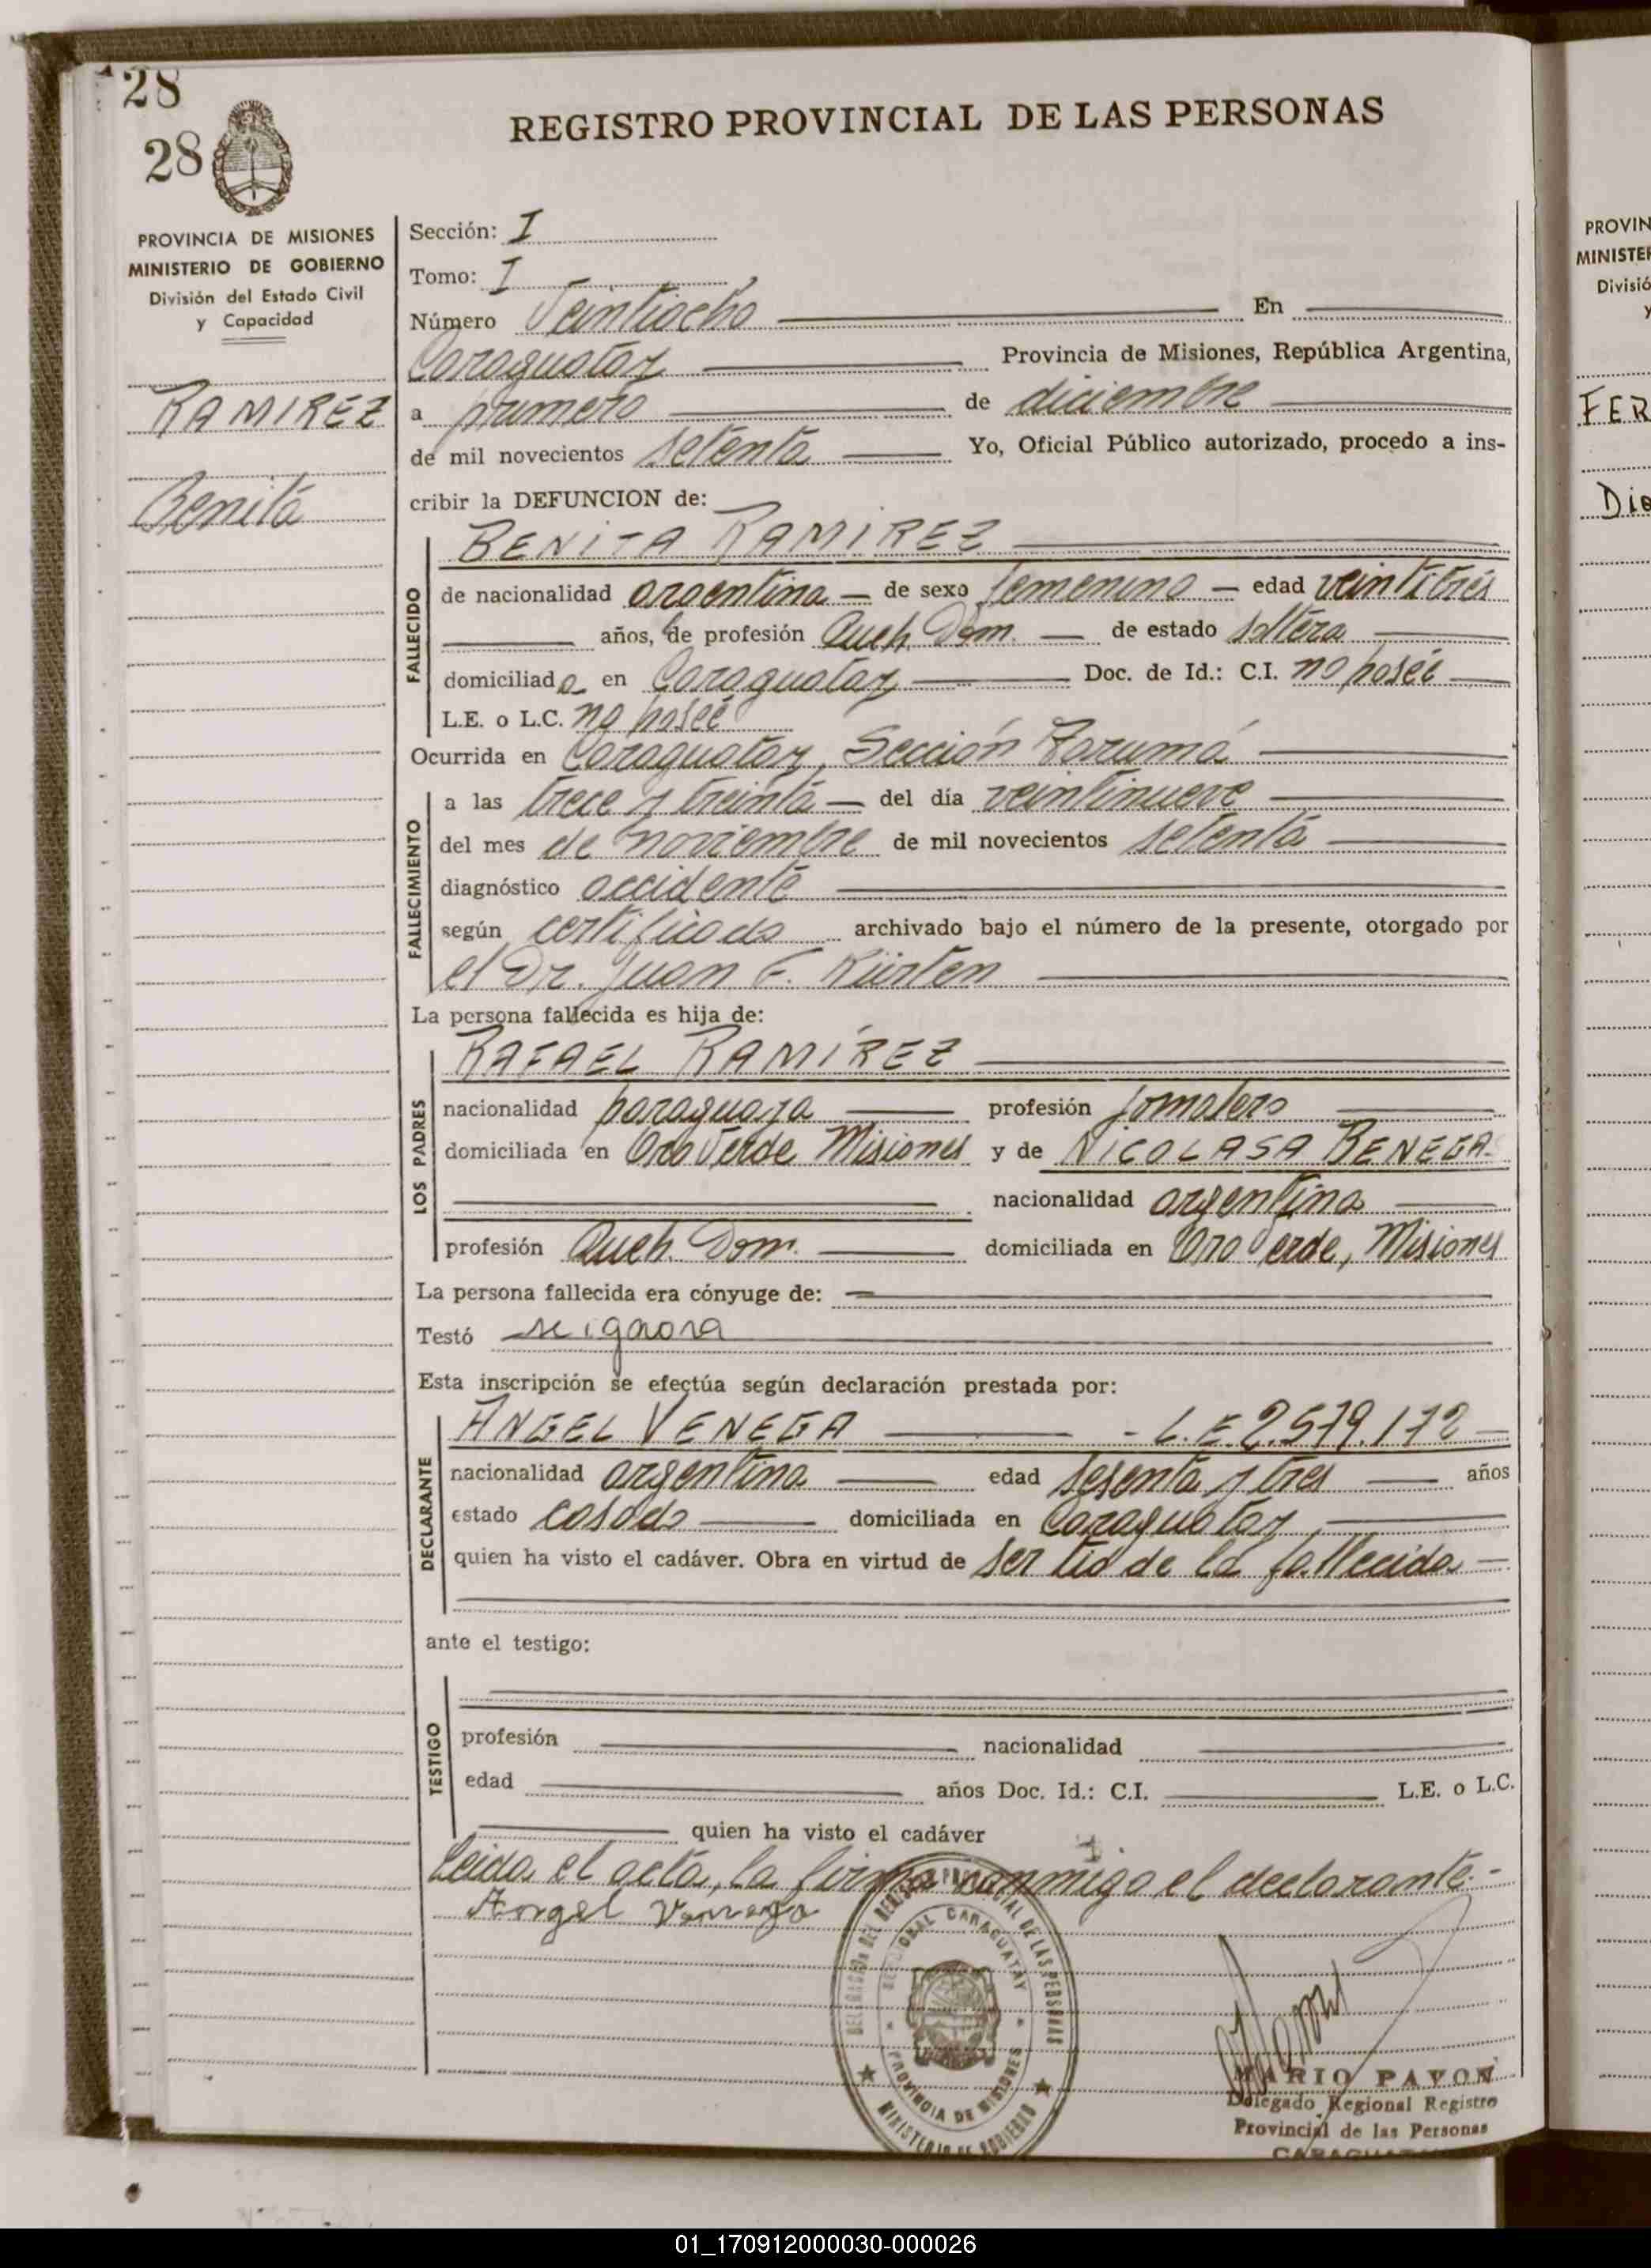 28
28
REGISTRO PROVINCIAL DE LAS PERSONAS
PROVINCIA DE MISIONES
MINISTERIO DE GOBIERNO
División del Estado Civil
y Capacidad
RAMIREZ
Benita
Sección: I
Tomo: I
Número Veintiocho En
Caraguatay Provincia de Misiones, República Argentina,
a primero de diciembre
de mil novecientos setenta Yo, Oficial Público autorizado, procedo a ins-
cribir la DEFUNCION de:
BENITA RAMIREZ
FALLECIDO
de nacionalidad argentina de sexo femenino edad veintitrés
años, de profesión Queh. Dom. de estado soltera
domiciliada en Caraguatay Doc. de Id.: C.I. no poseé
L.E. o L.C. no poseé
Ocurrida en Caraguatay, Sección
FALLECIMIENTO
a las trece y treinta del día veintinueve
del mes de noviembre de mil novecientos setenta
diagnóstico accidente
según certificado archivado bajo el número de la presente, otorgado por
el Dr. Juan F. Kürten
La persona fallecida es hija de:
RAFAEL RAMÍREZ
LOS PADRES
nacionalidad paraguaya profesión Jornalero
domiciliada en Oro Verde Misiones y de NICOLASA BENEGA
nacionalidad argentina
profesión Queh. Dom. domiciliada en Oro Verde, Misiones
La persona fallecida era cónyuge de:
Testó se ignora
Esta inscripción se efectúa según declaración prestada por:
ANGEL VENEGA - L.E. 2.579.172
DECLARANTE
nacionalidad argentina edad sesenta y tres años
estado casado domiciliada en Caraguatay
quien ha visto el cadáver. Obra en virtud de ser tio de la fallecida
ante el testigo:
TESTIGO
profesión nacionalidad
edad años Doc. Id.: C.I. L.E. o L.C.
quien ha visto el cadáver
Leida el acta, la firma conmigo el declarante.-
Angel Venega
DELEGACION DEL REGISTRO PROVINCIAL DE LAS PERSONAS
REGIONAL CARAGUATAY
PROVINCIA DE MISIONES
MINISTERIO DE GOBIERNO
MARIO PAVON
Delegado Regional Registro
Provincial de las Personas
PROVIN
MINISTER
Divisió
y
FER
Die
01_170912000030-000026